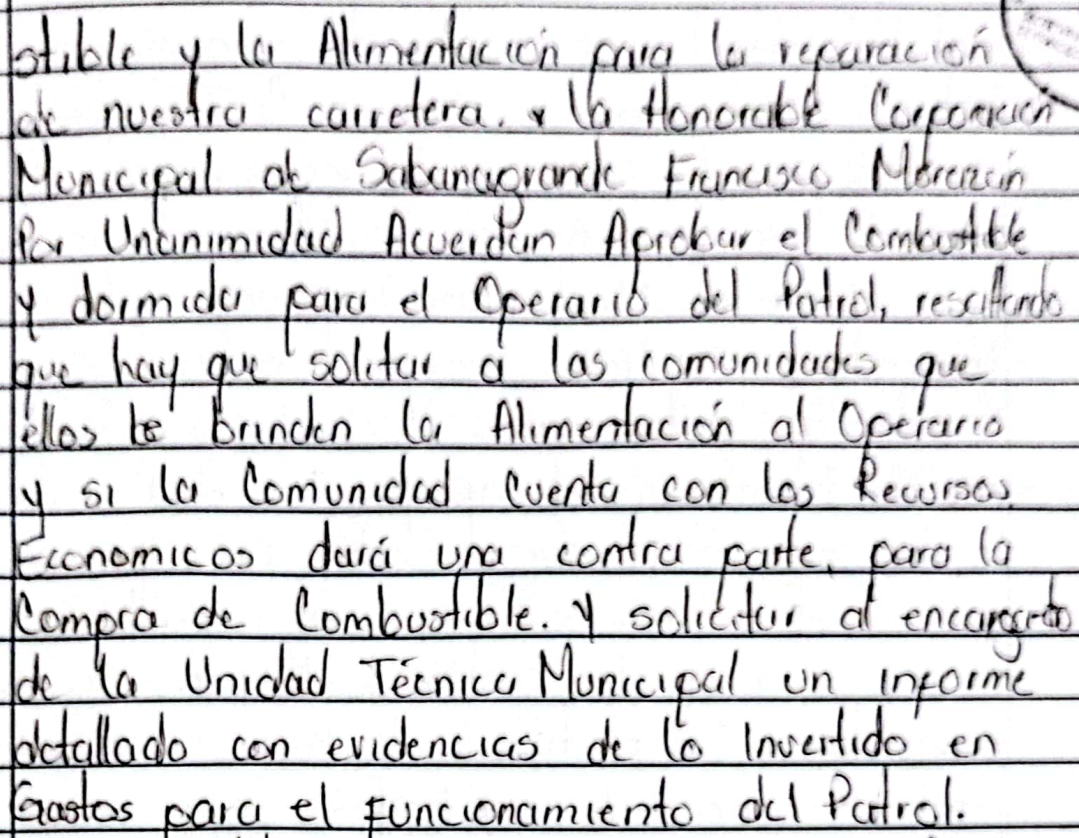 stible y la Alimentación para la reparación
de nuestra carretera. y la Honorable Corporación
Municipal de Sabanagrande Francisco Morazán
Por Unanimidad Acuerdan Aprobar el Combustible
y dormida para el Operario del Patrol, resaltando
que hay que solitar a las comunidades que
ellos le brinden la Alimentación al Operario
y si la Comunidad Cuenta con los Recursos
Economicos dará una contra parte, para la
Compra de Combustible. y solicitar al encargado
de la Unidad Técnica Municipal un informe
detallado con evidencias de lo Invertido en
Gastos para el Funcionamiento del Patrol.